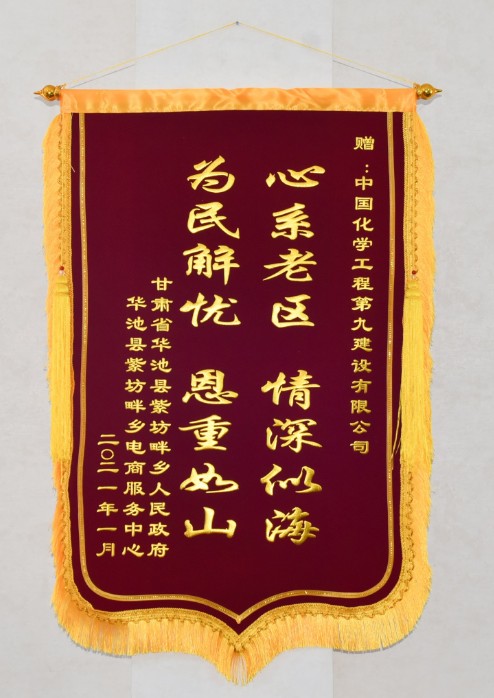 赠：中国化学工程第九建设有限公司
心系老区 情深似海
为民解忧 恩重如山
甘肃省华池县紫坊畔乡人民政府
华池县紫坊畔乡电商服务中心
二〇二一年一月